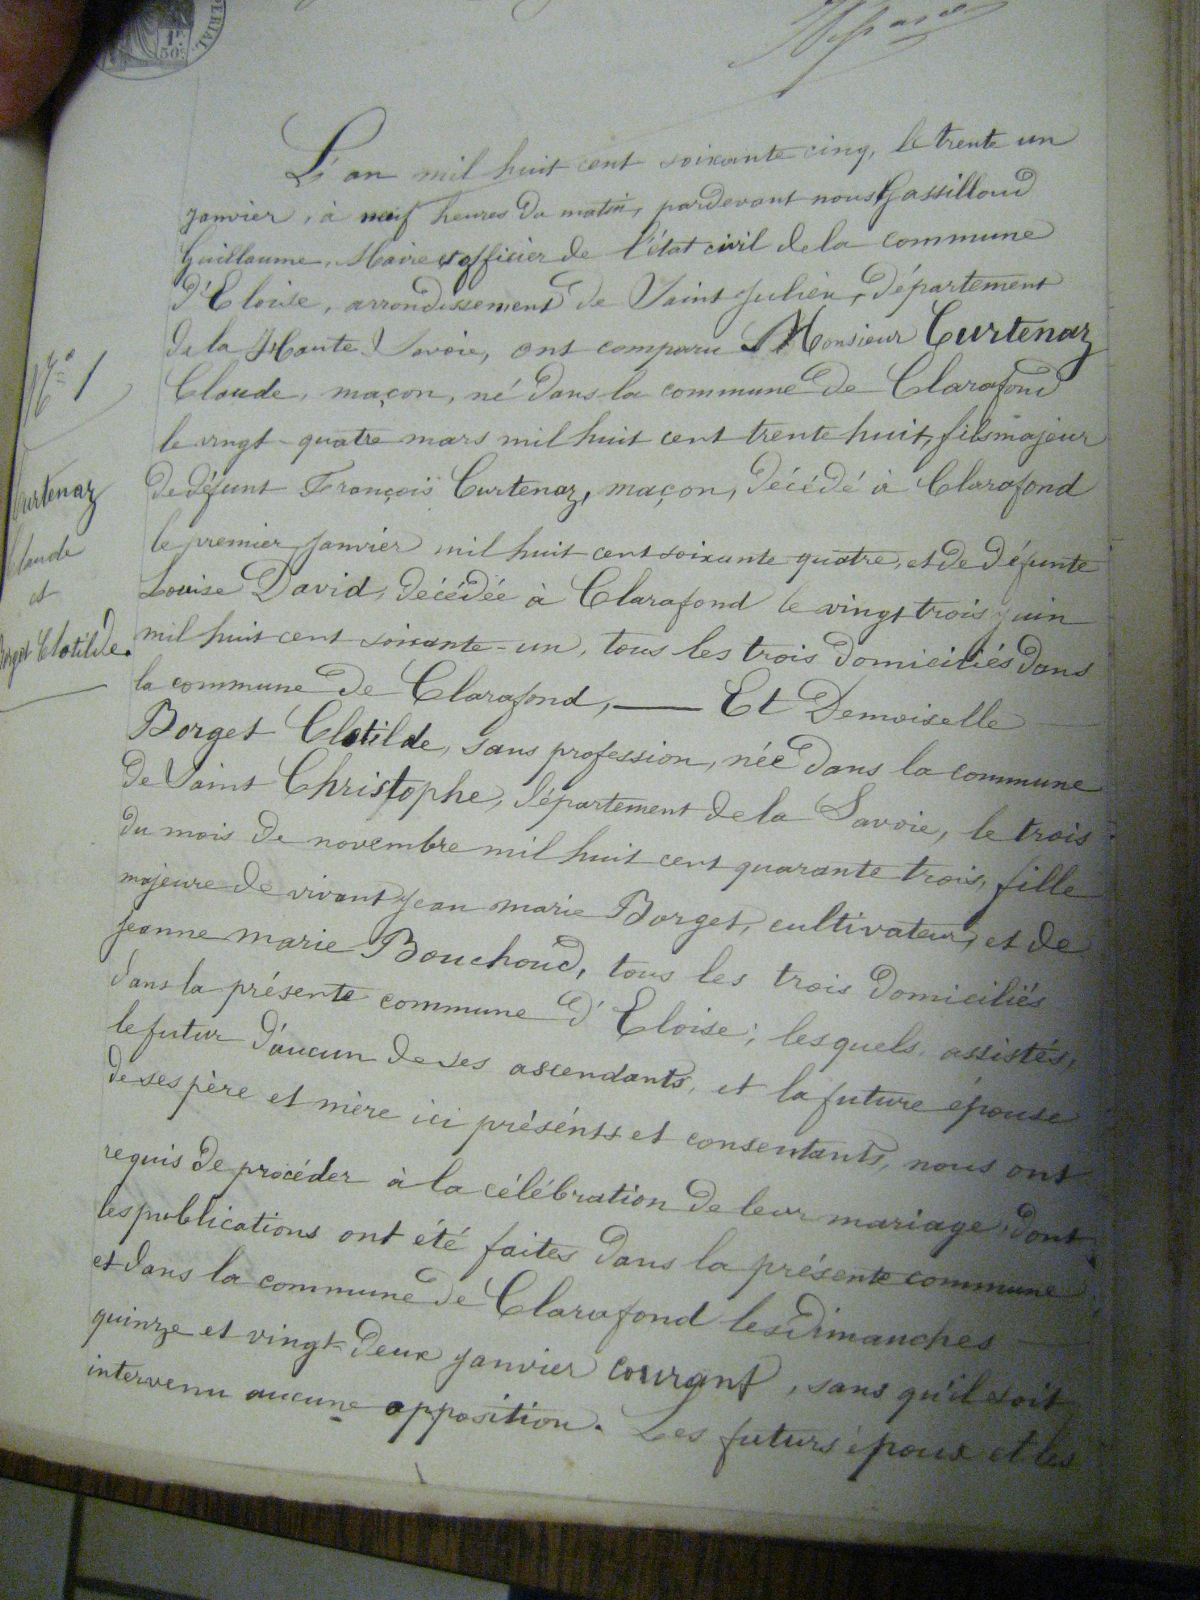 1F
50C
L'an mil huit cent soixante cinq, le trente un
janvier, à neuf heures du matin, pardevant nous Gassilloud
Guillaume, Maire et officier de l'état civil de la commune
d'Eloise, arrondissement de Saint Julien, département
de la Haute Savoie, ont comparu Monsieur Curtenaz
Claude, maçon, né dans la commune de Clarafond
le vingt-quatre mars mil huit cent trente huit, fils majeur
de défunt François Curtenaz, maçon, décédé à Clarafond
le premier janvier mil huit cent soixante quatre, et de défunte
Louise David, décédée à Clarafond le vingt trois juin
mil huit cent soixante-un, tous les trois domiciliés dans
la commune de Clarafond, — Et Demoiselle
Borget Clotilde, sans profession, née dans la commune
de Saint Christophe, département de la Savoie, le trois
du mois de novembre mil huit cent quarante trois, fille
majeure de vivant Jean marie Borget, cultivateur, et de
Jeanne marie Bouchoud, tous les trois domiciliés
dans la présente commune d'Eloise; lesquels, assistés,
le futur d'aucun de ses ascendants, et la future épouse
de ses père et mère ici présents et consentants, nous ont
requis de procéder à la célébration de leur mariage, dont
les publications ont été faites dans la présente commune
et dans la commune de Clarafond les dimanches
quinze et vingt-deux janvier courant, sans qu'il soit
intervenu aucune opposition. Les futurs époux et les
N.º 1
Curtenaz
Claude
et
Borget Clotilde.